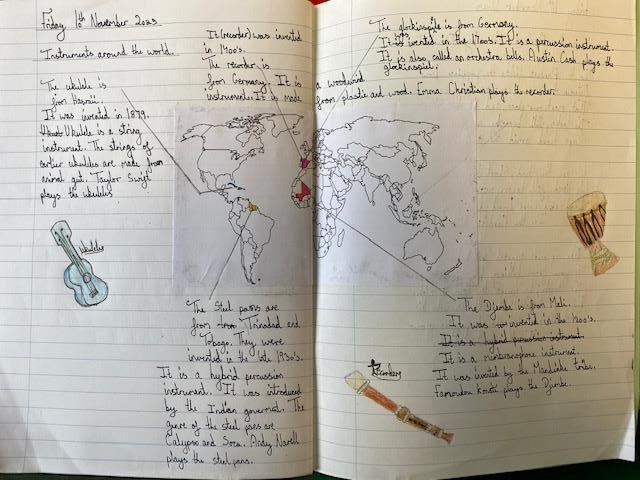 Friday 10th November 2023
Instruments around the world.
The ukulele is
from Hawaii.
It was invented in 1879.
Ukulele is a string
instrument. The strings of
earlier ukuleles are made from
animal gut. Taylor Swift
plays the ukuleles
ukulele
It (recorder) was invented
in 1400's.
The recorder is
from Germany. It is a woodwind
instrument. It is made from plastic and wood. Emma Christian plays the recorder.
The glockinspile is from Germany.
It is invented in the 1700s. It is a percussion instrument.
It is also called an orchestra bells. Austin Cash plays the
glockinspiel.
The Steel pans are
from Trinadad and
Tobago. They were
invented in the late 1930's.
It is a hybrid percussion
instrument. It was introduced
by the Indian governat. The
genre of the steel pans are
Calypso and Soca. Andy Narell
plays the steel pans.
The Djembe is from Mali.
It was invented in the 1200's.
It is a hybrid percussion instrument.
It is a minbranophone instrument.
It was invented by the Mandinke tribe.
Famoudou konate plays the Djembe.